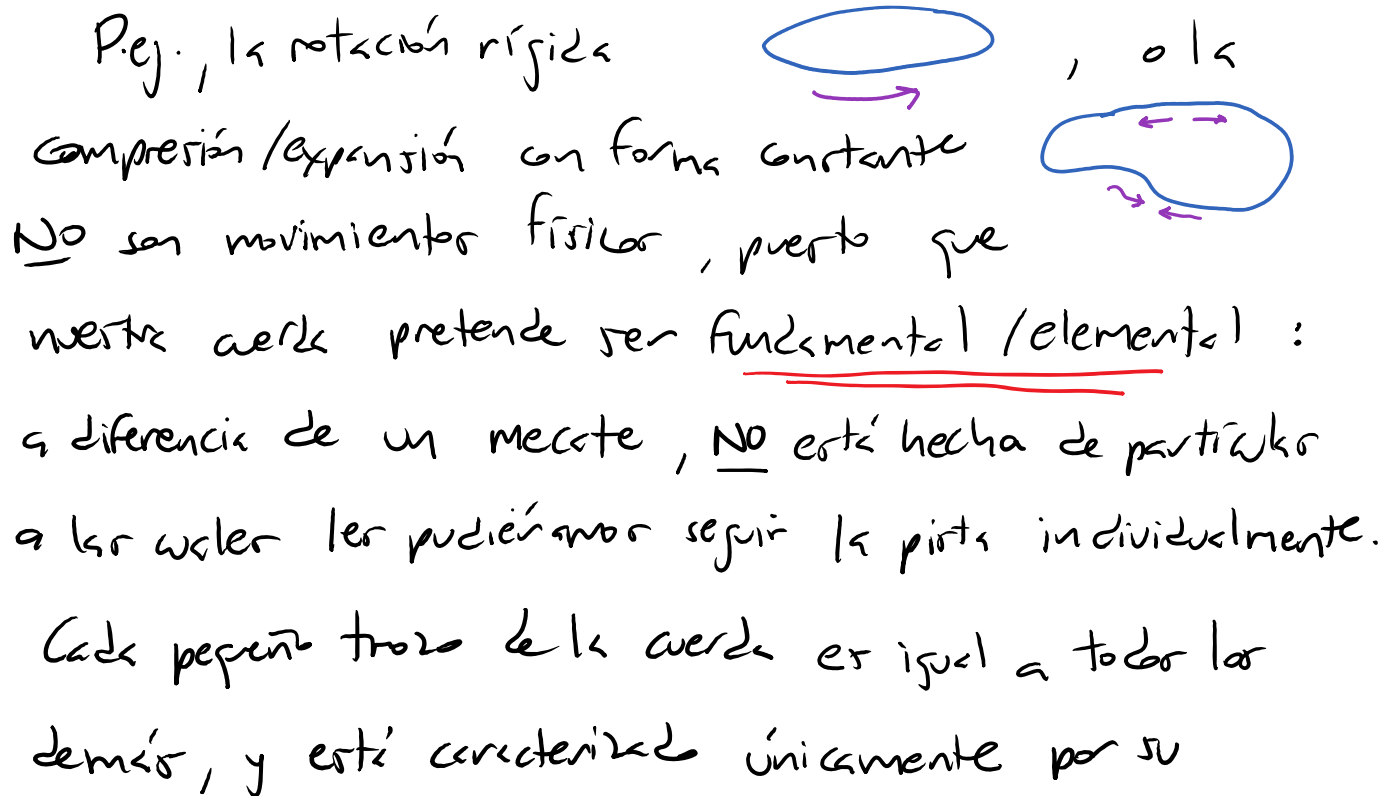 P.ej., la rotación rígida , o la
compresión/expansión con forma constante
NO son movimientos físicos, puesto que
nuestra cuerda pretende ser fundamental/elemental :
a diferencia de un mecate, NO está hecha de partículas
a las cuales les pudiéramos seguir la pista individualmente.
Cada pequeño trozo de la cuerda es igual a todos los
demás, y está caracterizado únicamente por su